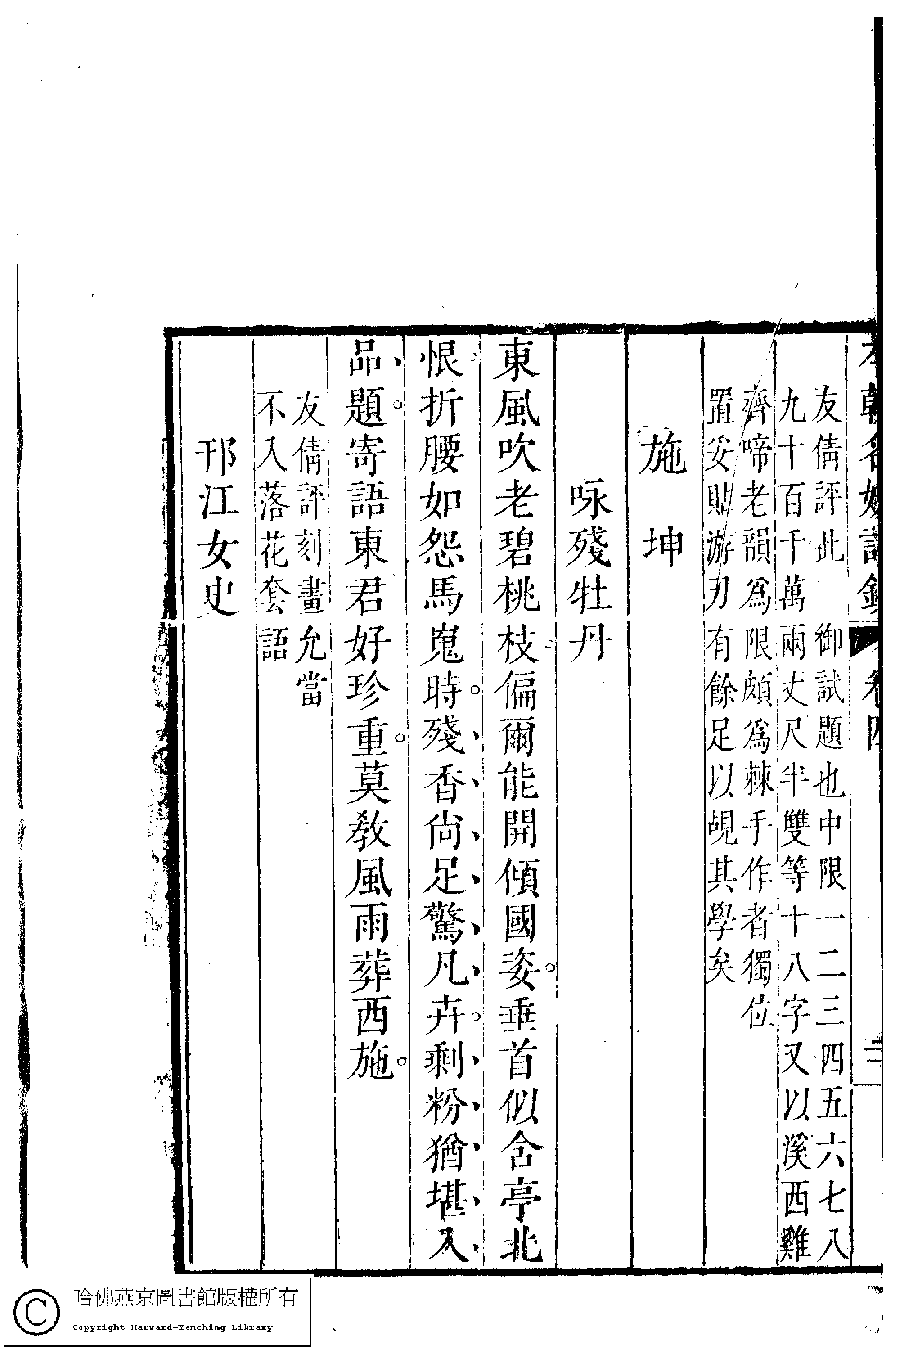 本朝名媛詩鈔 卷四 二
友倩評此 御試題也中限一二三四五六七八
九十百千萬兩丈尺半雙等十八字又以溪西雞
齊啼老韻爲限頗爲棘手作者獨位
置妥貼游刃有餘足以覘其學矣
施坤
咏殘牡丹
東風吹老碧桃枝偏爾能開傾國姿垂首似含亭北
恨折腰如怨馬嵬時殘香尙足驚凡卉剩粉猶堪入
品題寄語東君好珍重莫敎風雨葬西施
友倩評刻畫允當
不入落花套語
邗江女史
哈佛燕京圖書館版權所有
Copyright Harvard-Yenching Library